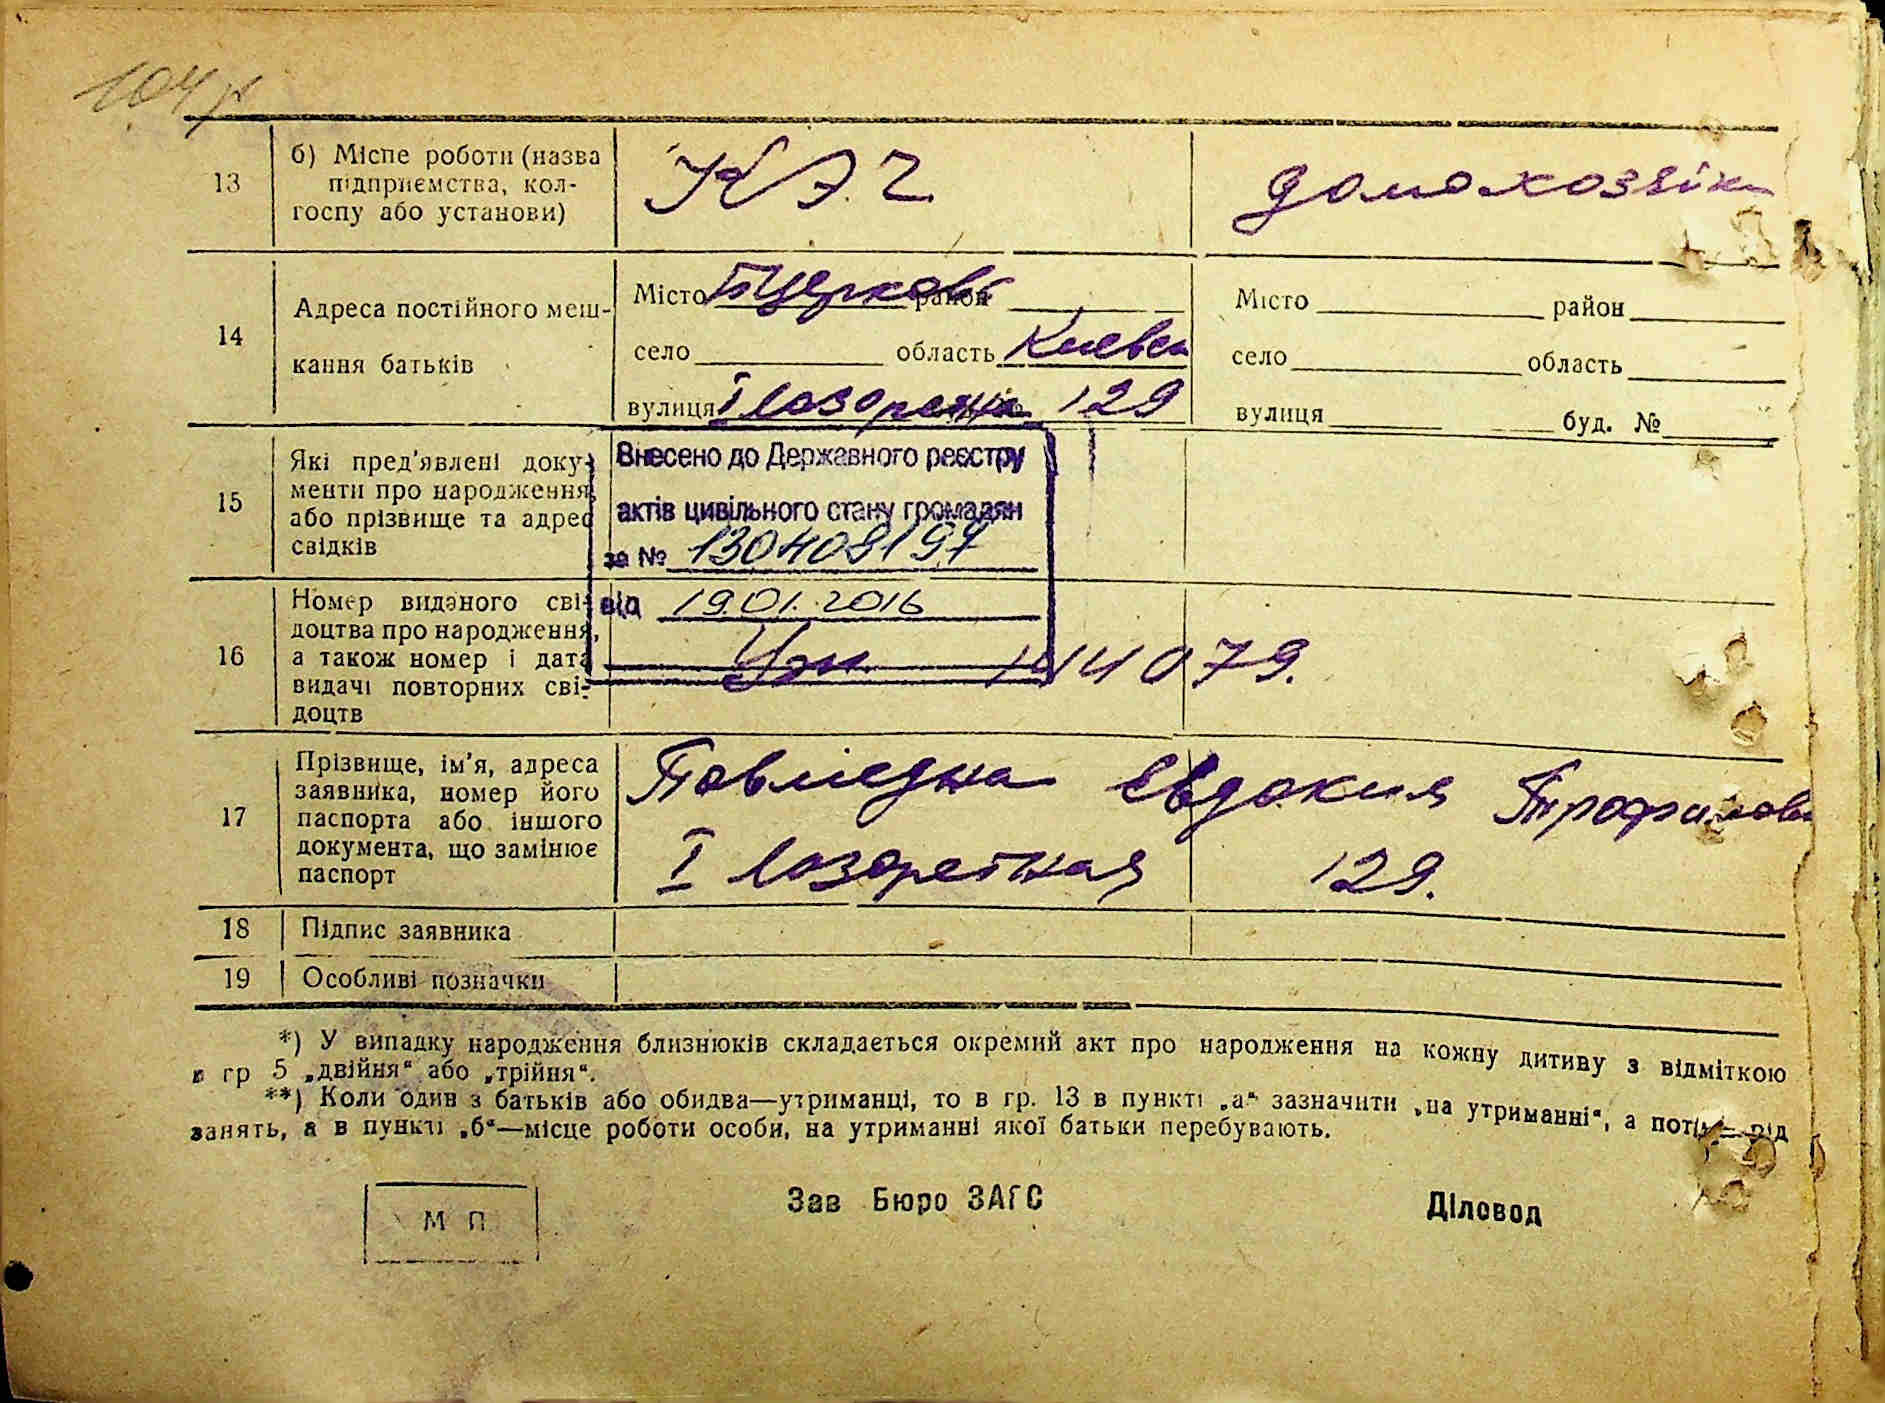 13
б) Місце роботи (назва
підприємства, кол-
госпу або установи)
К.Э.Ч.
домохозяйк
14
Адреса постійного меш-
кання батьків
Місто Б Церковь район
село область Киевск
вулиця І Лазаретная 129
Місто район
село область
вулиця буд. №
15
Які пред'явлені доку-
менти про народження,
або прізвище та адрес
свідків
Внесено до Державного реєстру
актів цивільного стану громадян
за № 130408197
від 19.01.2016
16
Номер виданого сві-
доцтва про народження,
а також номер і дата
видачі повторних сві-
доцтв
144079.
17
Прізвище, ім'я, адреса
заявника, номер його
паспорта або іншого
документа, що замінює
паспорт
Евдокия Трофимовн
І Лазаретная 129.
18
Підпис заявника
19
Особливі позначки
*) У випадку народження близнюків складається окремий акт про народження на кожну дитину з відміткою
в гр 5 „двійня“ або „трійня“.
**) Коли один з батьків або обидва—утриманці, то в гр. 13 в пункті „а“ зазначити „на утриманні“, а потім— рід
занять, а в пункті „б“—місце роботи особи, на утриманні якої батьки перебувають.
М П
Зав Бюро ЗАГС
Діловод